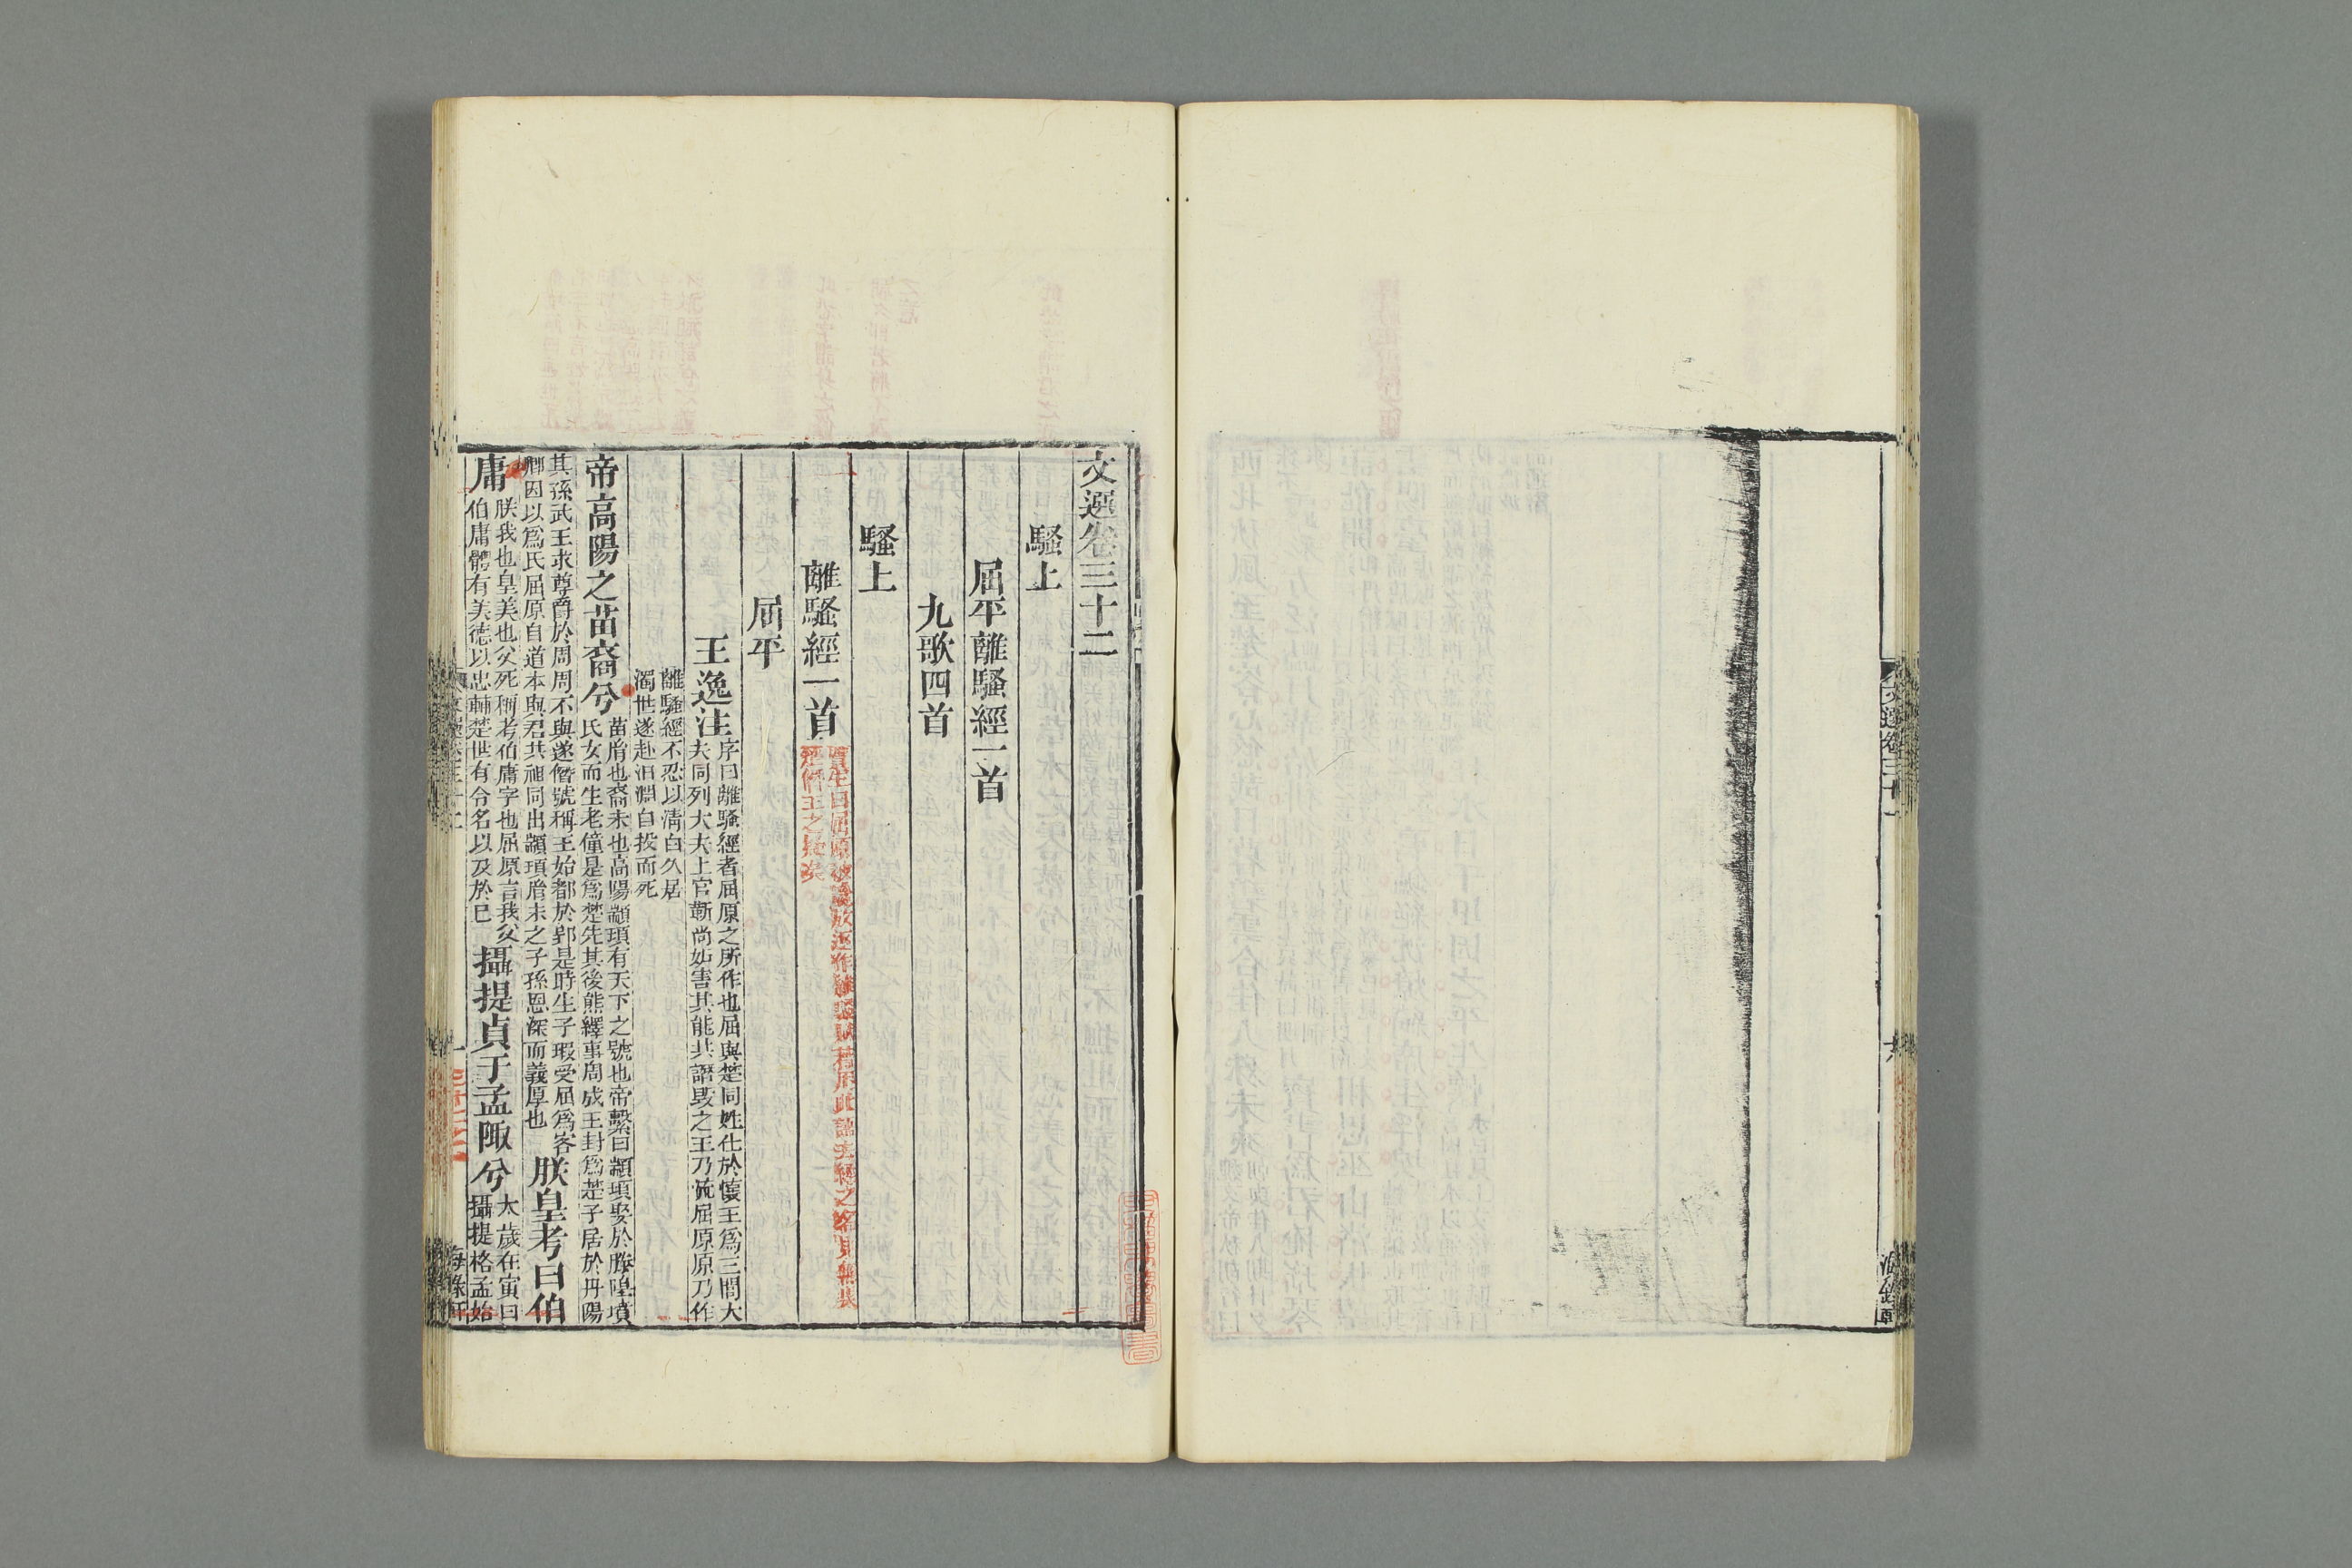 文選卷三十二
騷上
屈平離騷經一首
九歌四首
騷上
離騷經一首
賈生曰屈原被讒放逐作離騷賦
屈平
王逸注
序曰離騷經者屈原之所作也屈與楚同姓仕於懷王爲三閭大
夫同列大夫上官靳尚妬害其能共譖毀之王乃流屈原原乃作
離騷經不忍以淸白久居
濁世遂赴汨淵自投而死
帝高陽之苗裔兮
苗胤也裔末也高陽顓頊有天下之號也帝繫曰顓頊娶於滕隍墳
氏女而生老僮是爲楚先其後熊繹事周成王封爲楚子居於丹陽
其孫武王求尊爵於周周不與遂僭號稱王始都於郢是時生子瑕受屈爲客
卿因以爲氏屈原自道本與君共祖同出顓頊胤末之子孫恩深而義厚也
朕皇考曰伯
庸
朕我也皇美也父死稱考伯庸字也屈原言我父
伯庸體有美德以忠輔楚世有令名以及於己
攝提貞于孟陬兮
太歲在寅曰
攝提格孟始
海錄軒
文選卷三十一